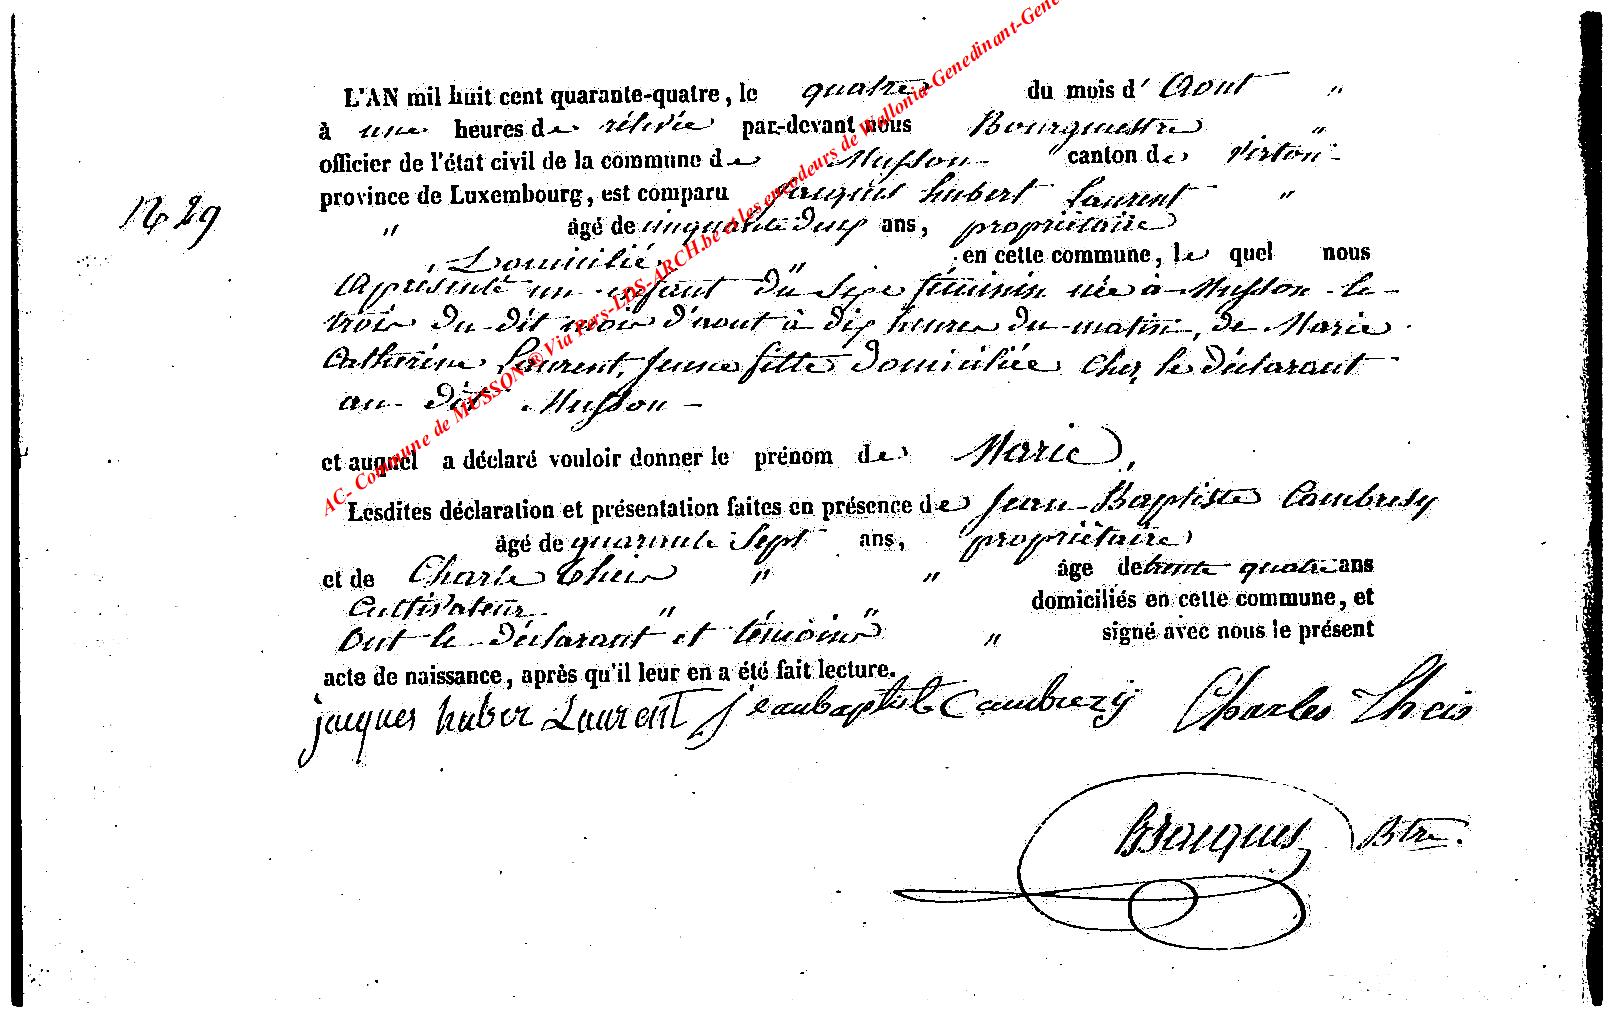 L'AN mil huit cent quarante-quatre, le quatre du mois d' Aout "
à une heures de rélévée par-devant nous Bourgmestre "
officier de l'état civil de la commune de Musson canton de Virton
province de Luxembourg, est comparu Jacques hubert Laurent "
N° 29
" âgé de cinquante deux ans, propriétaire
Domicilié " en cette commune, le quel nous
a présenté un enfant du Sexe féminin née à Musson le
trois du dit mois d'aout à dix heures du matin, de Marie
Catherine Laurent, jeune fille domiciliée chez le déclarant
au dit Musson
et auquel a déclaré vouloir donner le prénom de Marie,
Lesdites déclaration et présentation faites en présence de Jean Baptiste Cambresy
âgé de quarante Sept ans, propriétaire
et de Charle theis " " âge de trente quatre ans
Cultivateur " " domiciliés en cette commune, et
Ont le déclarant et témoins " signé avec nous le présent
acte de naissance, après qu'il leur en a été fait lecture.
jacques huber Laurent jeanbaptiste Cambrezÿ Charles Theis
Btre.
AC- Commune de MUSSON ® Via Pers-LDS-ARCH.be et les encodeurs de Wallonia-Genedinant-Gene